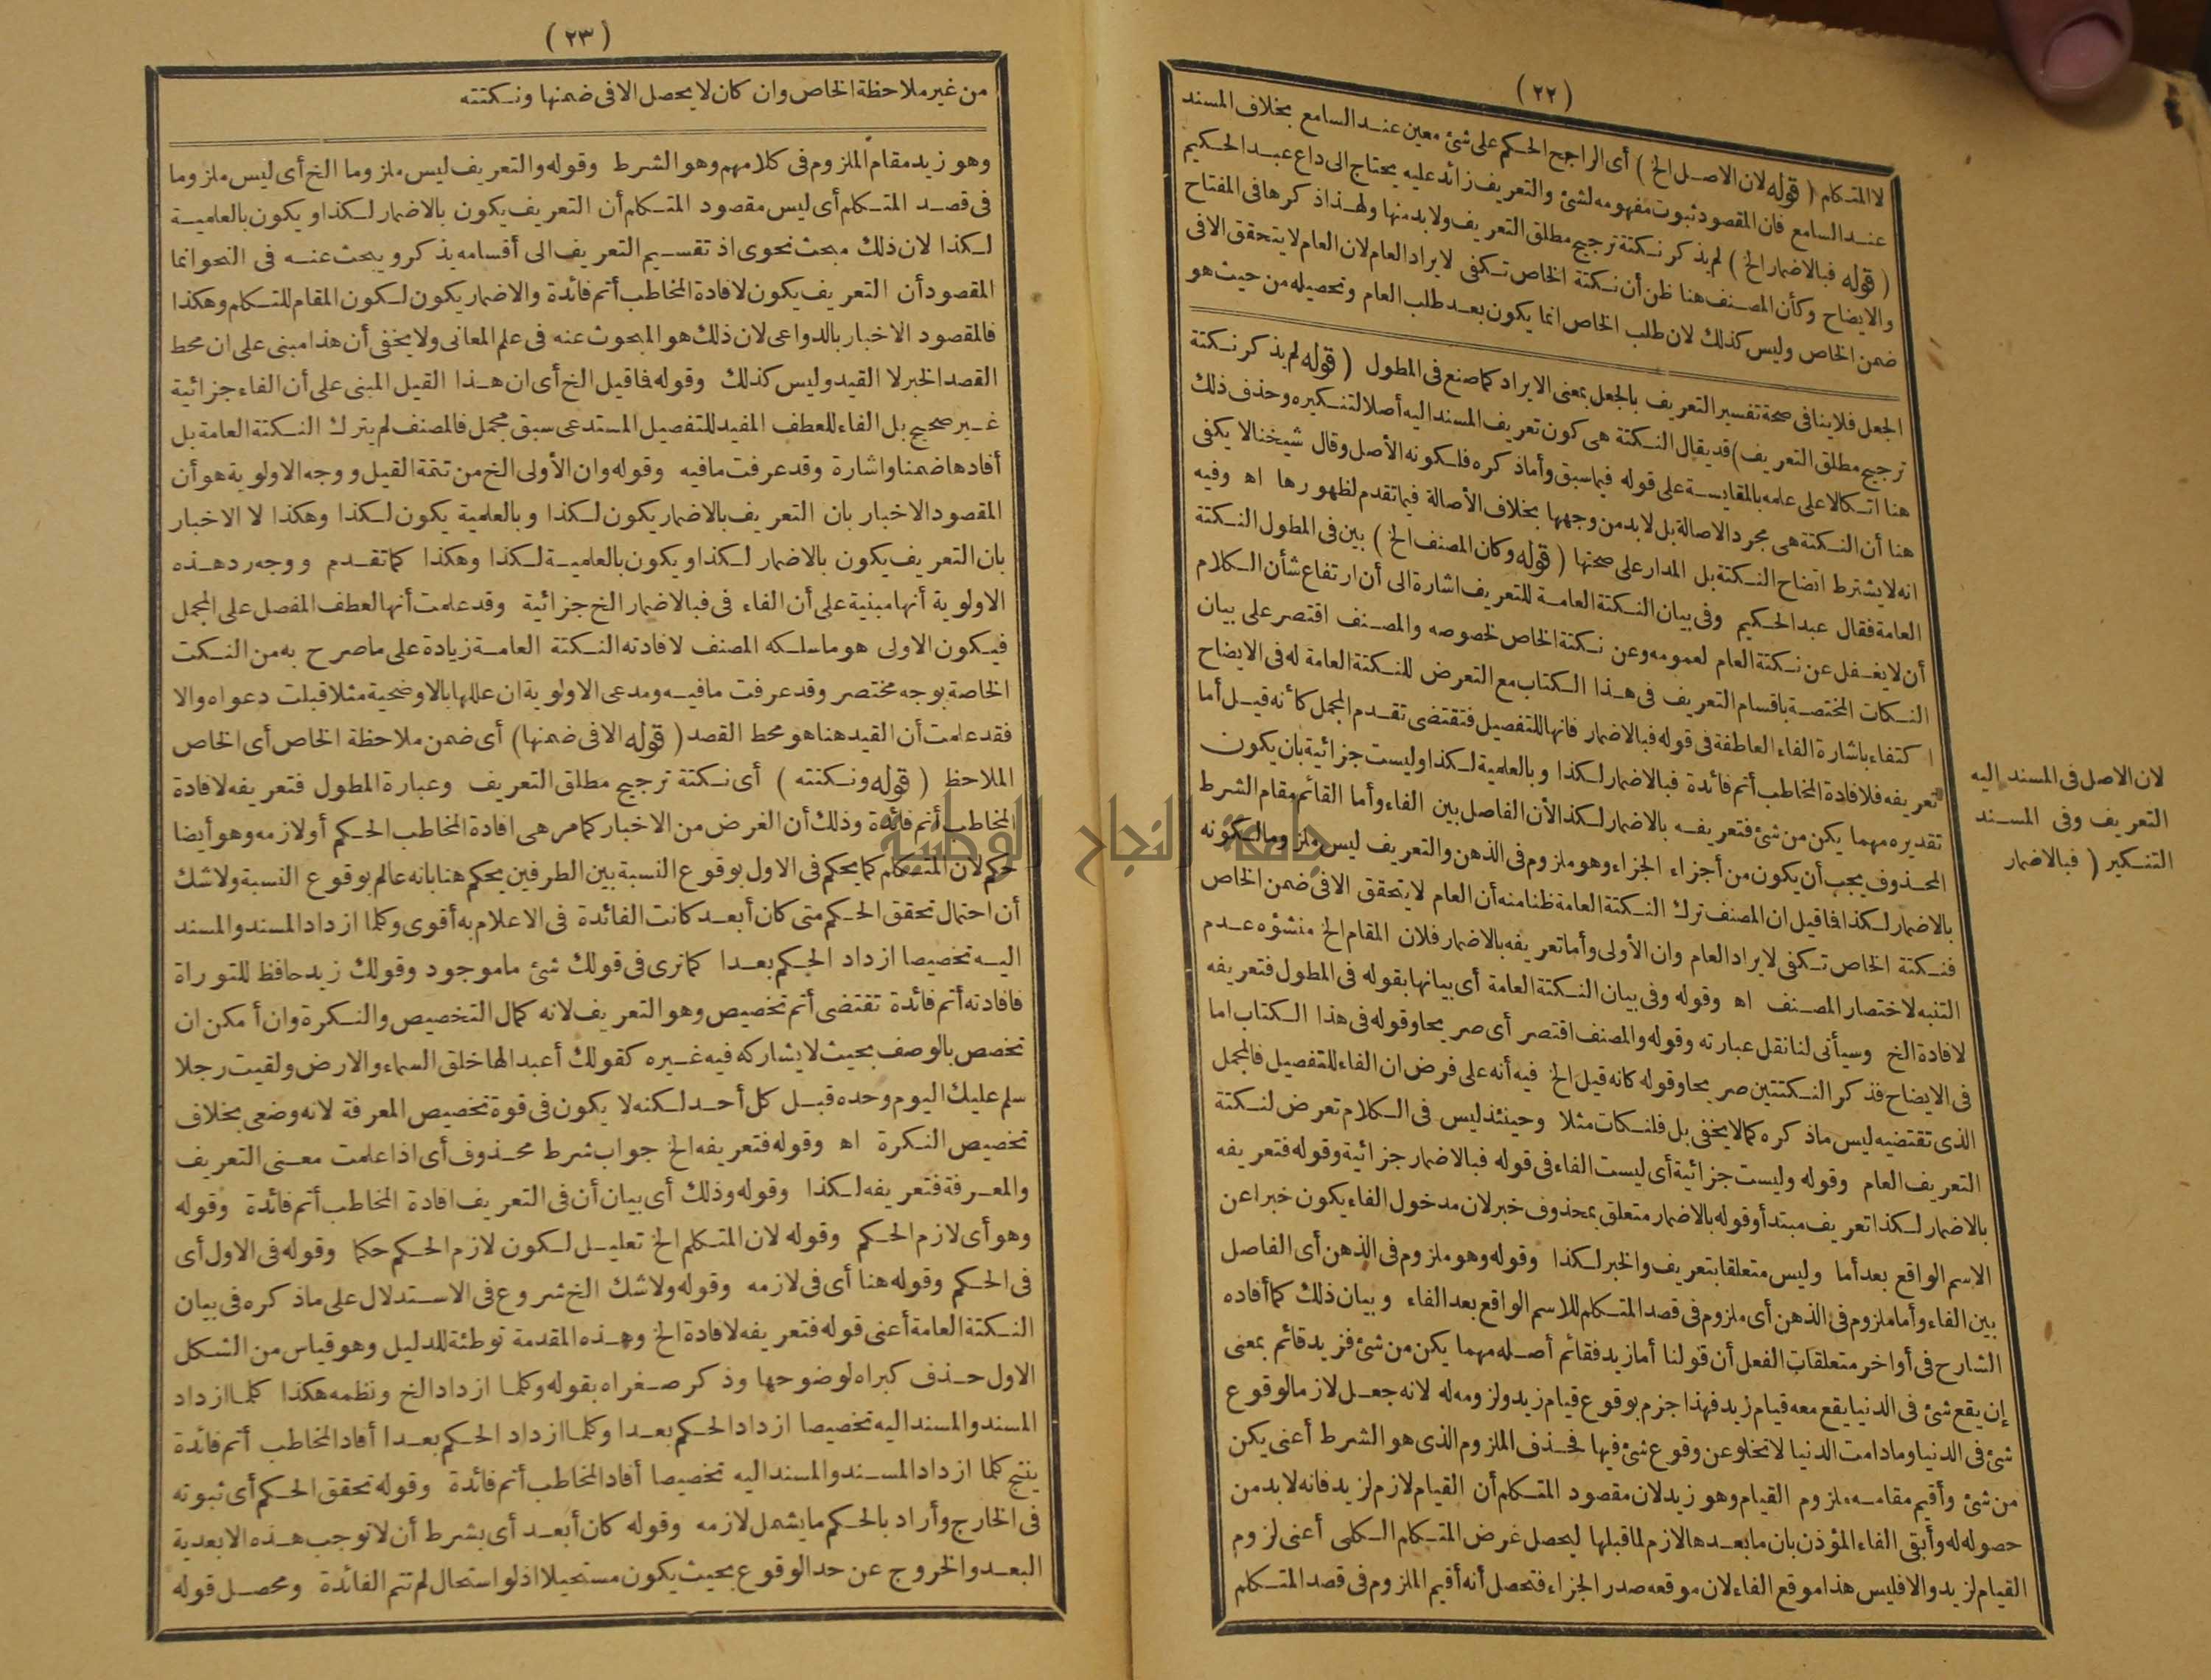 ( ٢٢ )
لا المتكلم ( قوله لان الاصل الخ ) أى الراجح الحكم على شئ معين عند السامع بخلاف المسند
عند السامع فان المقصود ثبوت مفهومه لشئ والتعريف زائد عليه يحتاج الى داع عبد الحكيم
( قوله فبالاضمار الخ ) لم يذكر نكتة ترجيح مطلق التعريف ولا بد منها ولهذا ذكرها فى المفتاح
والايضاح وكأن المصنف هنا ظن أن نكتة الخاص تكفى لايراد العام لان العام لا يتحقق الا فى
ضمن الخاص وليس كذلك لان طلب الخاص انما يكون بعد طلب العام وتحصيله من حيث هو
الجعل فلا ينافى صحة تفسير التعريف بالجعل بمعنى الايراد كما صنع فى المطول ( قوله لم يذكر نكتة
ترجيح مطلق التعريف ) قد يقال النكتة هى كون تعريف المسند اليه أصلا لتنكيره وحذف ذلك
هنا اتكالا على علمه بالمقايسة على قوله فيما سبق وأما ذكره فلكونه الأصل وقال شيخنا لا يكفى
هنا أن النكتة هى مجرد الاصالة بل لا بد من وجهها بخلاف الأصالة فيما تقدم لظهورها اه وفيه
انه لا يشترط اتضاح النكتة بل المدار على صحتها ( قوله وكان المصنف الخ ) بين فى المطول النكتة
العامة فقال عبد الحكيم وفى بيان النكتة العامة للتعريف اشارة الى أن ارتفاع شأن الكلام
أن لا يغفل عن نكتة العام لعمومه وعن نكتة الخاص لخصوصه والمصنف اقتصر على بيان
النكات المختصة باقسام التعريف فى هذا الكتاب مع التعرض للنكتة العامة له فى الايضاح
اكتفاء باشارة الفاء العاطفة فى قوله فبالاضمار فانها للتفصيل فتقتضى تقدم المجمل كأنه قيل أما
تعريفه فلافادة المخاطب أتم فائدة فبالاضمار لكذا وبالعلمية لكذا وليست جزائية بان يكون
تقديره مهما يكن من شئ فتعريفه بالاضمار لكذا لأن الفاصل بين الفاء وأما القائم مقام الشرط
المحذوف يجب أن يكون من أجزاء الجزاء وهو ملزوم فى الذهن والتعريف ليس ملزوما لكونه
بالاضمار لكذا فاقيل ان المصنف ترك النكتة العامة ظنا منه أن العام لا يتحقق الا فى ضمن الخاص
فنكتة الخاص تكفى لايراد العام وان الأولى وأما تعريفه بالاضمار فلان المقام الخ منشؤه عدم
التنبه لاختصار المصنف اه وقوله وفى بيان النكتة العامة أى بيانها بقوله فى المطول فتعريفه
لافادة الخ وسيأتى لنا نقل عبارته وقوله والمصنف اقتصر أى صريحا وقوله فى هذا الكتاب اما
فى الايضاح فذكر النكتتين صريحا وقوله كانه قيل الخ فيه أنه على فرض ان الفاء للتفصيل فالمجمل
الذى تقتضيه ليس ماذكره كما لا يخفى بل فلنكات مثلا وحينئذ ليس فى الكلام تعرض لنكتة
التعريف العام وقوله وليست جزائية أى ليست الفاء فى قوله فبالاضمار جزائية وقوله فتعريفه
بالاضمار لكذا تعريف مبتدأ وقوله بالاضمار متعلق بمحذوف خبر لان مدخول الفاء يكون خبرا عن
الاسم الواقع بعد أما وليس متعلقا بتعريف والخبر لكذا وقوله وهو ملزوم فى الذهن أى الفاصل
بين الفاء وأما ملزوم فى الذهن أى ملزوم فى قصد المتكلم للاسم الواقع بعد الفاء وبيان ذلك كما أفاده
الشارح فى أواخر متعلقات الفعل أن قولنا أما زيد فقائم أصله مهما يكن من شئ فزيد قائم بمعنى
إن يقع شئ فى الدنيا يقع معه قيام زيد فهذا جزم بوقوع قيام زيد ولزومه له لانه جعل لازما لوقوع
شئ فى الدنيا وما دامت الدنيا لا تخلو عن وقوع شئ فيها فحذف الملزوم الذى هو الشرط أعنى يكن
من شئ وأقيم مقامه ملزوم القيام وهو زيد لان مقصود المتكلم أن القيام لازم لزيد فانه لا بد من
حصوله له وأبقى الفاء المؤذن بان مابعدها لازم لما قبلها ليحصل غرض المتكلم الكلى أعنى لزوم
القيام لزيد والا فليس هذا موقع الفاء لان موقعه صدر الجزاء فتحصل أنه أقيم الملزوم فى قصد المتكلم
لان الاصل فى المسند اليه
التعريف وفى المسند
التنكير ( فبالاضمار
( ٢٣ )
من غير ملاحظة الخاص وان كان لا يحصل الا فى ضمنها ونكتته
وهو زيد مقام الملزوم فى كلامهم وهو الشرط وقوله والتعريف ليس ملزوما الخ أى ليس ملزوما
فى قصد المتكلم أى ليس مقصود المتكلم أن التعريف يكون بالاضمار لكذا ويكون بالعلمية
لكذا لان ذلك مبحث نحوى اذ تقسيم التعريف الى أقسامه يذكر ويبحث عنه فى النحو انما
المقصود أن التعريف يكون لافادة المخاطب أتم فائدة والاضمار يكون لكون المقام للتكلم وهكذا
فالمقصود الاخبار بالدواعى لان ذلك هو المبحوث عنه فى علم المعانى ولا يخفى أن هذا مبنى على ان محط
القصد الخبر لا القيد وليس كذلك وقوله فاقيل الخ أى ان هذا القيل المبنى على أن الفاء جزائية
غير صحيح بل الفاء للعطف المفيد للتفصيل المستدعى سبق مجمل فالمصنف لم يترك النكتة العامة بل
أفادها ضمنا واشارة وقد عرفت مافيه وقوله وان الأولى الخ من تتمة القيل ووجه الاولوية هو أن
المقصود الاخبار بان التعريف بالاضمار يكون لكذا وبالعلمية يكون لكذا وهكذا لا الاخبار
بان التعريف يكون بالاضمار لكذا ويكون بالعلمية لكذا وهكذا كما تقدم ووجه رد هذه
الاولوية أنها مبنية على أن الفاء فى فبالاضمار الخ جزائية وقد علمت أنها لعطف المفصل على المجمل
فيكون الاولى هو ما سلكه المصنف لافادته النكتة العامة زيادة على ما صرح به من النكت
الخاصة بوجه مختصر وقد عرفت مافيه ومدعى الاولوية ان عللها بالاوضحية مثلا قبلت دعواه والا
فقد علمت أن القيد هنا هو محط القصد ( قوله الا فى ضمنها ) أى ضمن ملاحظة الخاص أى الخاص
الملاحظ ( قوله ونكتته ) أى نكتة ترجيح مطلق التعريف وعبارة المطول فتعريفه لافادة
المخاطب أتم فائدة وذلك أن الغرض من الاخبار كما مر هى افادة المخاطب الحكم أو لازمه وهو أيضا
حكم لان المتكلم كما يحكم فى الاول بوقوع النسبة بين الطرفين يحكم هنا بانه عالم بوقوع النسبة ولا شك
أن احتمال تحقق الحكم متى كان أبعد كانت الفائدة فى الاعلام به أقوى وكلما ازداد المسند والمسند
اليه تخصيصا ازداد الحكم بعدا كما ترى فى قولك شئ ما موجود وقولك زيد حافظ للتوراة
فافادته أتم فائدة تقتضى أتم تخصيص وهو التعريف لانه كمال التخصيص والنكرة وان أمكن ان
تخصص بالوصف بحيث لا يشاركه فيه غيره كقولك أعبد الها خلق السماء والارض ولقيت رجلا
سلم عليك اليوم وحده قبل كل أحد لكنه لا يكون فى قوة تخصيص المعرفة لانه وضعى بخلاف
تخصيص النكرة اه وقوله فتعريفه الخ جواب شرط محذوف أى اذا علمت معنى التعريف
والمعرفة فتعريفه لكذا وقوله وذلك أى بيان أن فى التعريف افادة المخاطب أتم فائدة وقوله
وهو أى لازم الحكم وقوله لان المتكلم الخ تعليل لكون لازم الحكم حكما وقوله فى الاول أى
فى الحكم وقوله هنا أى فى لازمه وقوله ولا شك الخ شروع فى الاستدلال على ماذكره فى بيان
النكتة العامة أعنى قوله فتعريفه لافادة الخ وهذه المقدمة توطئة للدليل وهو قياس من الشكل
الاول حذف كبراه لوضوحها وذكر صغراه بقوله وكلما ازداد الخ ونظمه هكذا كلما ازداد
المسند والمسند اليه تخصيصا ازداد الحكم بعدا وكلما ازداد الحكم بعدا أفاد المخاطب أتم فائدة
ينتج كلما ازداد المسند والمسند اليه تخصيصا أفاد المخاطب أتم فائدة وقوله تحقق الحكم أى ثبوته
فى الخارج وأراد بالحكم ما يشمل لازمه وقوله كان أبعد أى بشرط أن لا توجب هذه الابعدية
البعد والخروج عن حد الوقوع بحيث يكون مستحيلا اذ لو استحال لم تتم الفائدة ومحصل قوله
جامعة النجاح الوطنية